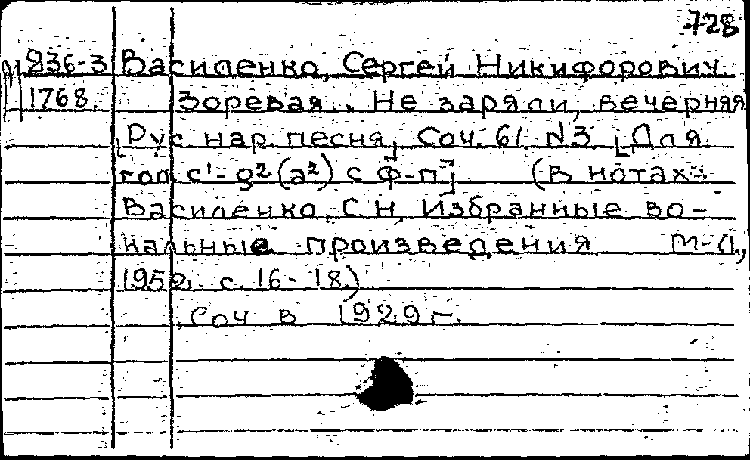 728
М 236-3 Василенко, Сергей Никифорович.
1768 Зоревая. Не заря ли, вечерняя
[Рус. нар. песня] Соч. 61 №3 [Для
гол. c¹-g²(a²) с ф-п] (В нотах:
Василенко, С.Н. Избранные во-
кальные произведения М-Л.,
1952. с. 16-18.)
Соч в 1929 г.